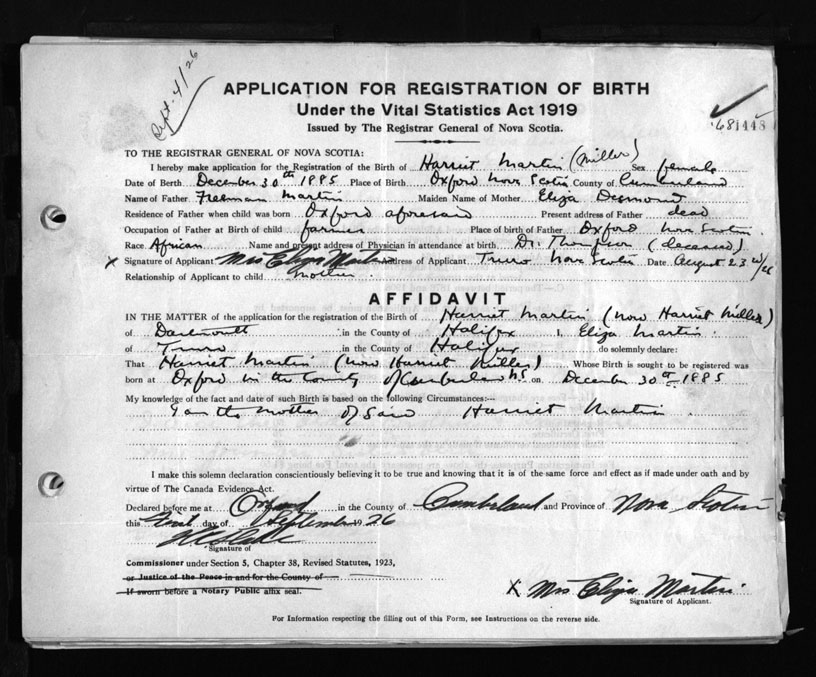 Sept. 4/26
APPLICATION FOR REGISTRATION OF BIRTH
Under the Vital Statistics Act 1919
Issued by The Registrar General of Nova Scotia.
681448
TO THE REGISTRAR GENERAL OF NOVA SCOTIA:
I hereby make application for the Registration of the Birth of Harriet Martin (Miller) Sex female
Date of Berth December 30th 1885 Place of Birth Oxford Nova Scotia County of Cumberland
Name of Father Freeman Martin Maiden Name of Mother Eliza Desmond
Residence of Father when child was born Oxford aforesaid Present address of Father dead
Occupation of Father at Birth of child farmer Place of birth of Father Oxford Nova Scotia
Race African Name and present address of Physician in attendance at birth Dr. Thompson (deceased)
x Signature of Applicant Mrs Eliza Martin Address of Applicant Truro Nova Scotia Date August 23rd/26
Relationship of Applicant to child mother
AFFIDAVIT
IN THE MATTER of the application for the registration of the Birth of Harriet Martin (now Harriet Miller)
of Dartmouth in the County of Halifax I, Eliza Martin
of Truro in the County of Halifax do solemnly declare:
That Harriet Martin (now Harriet Miller) Whose Birth is sought to be registered was
born at Oxford in the County of Cumberland NS on December 30th 1885
My knowledge of the fact and date of such Birth is based on the following Circumstances:—
I am the mother of said Harriet Martin
I make this solemn declaration conscientiously believing it to be true and knowing that it is of the same force and effect as if made under oath and by
virtue of The Canada Evidence Act.
Declared before me at Oxford in the County of Cumberland and Province of Nova Scotia
this first day of September 1926
Signature of
Commissioner under Section 5, Chapter 38, Revised Statutes, 1923,
or Justice of the Peace in and for the County of
If sworn before a Notary Public affix seal.
X Mrs Eliza Martin
Signature of Applicant.
For Information respecting the filling out of this Form, see Instructions on the reverse side.